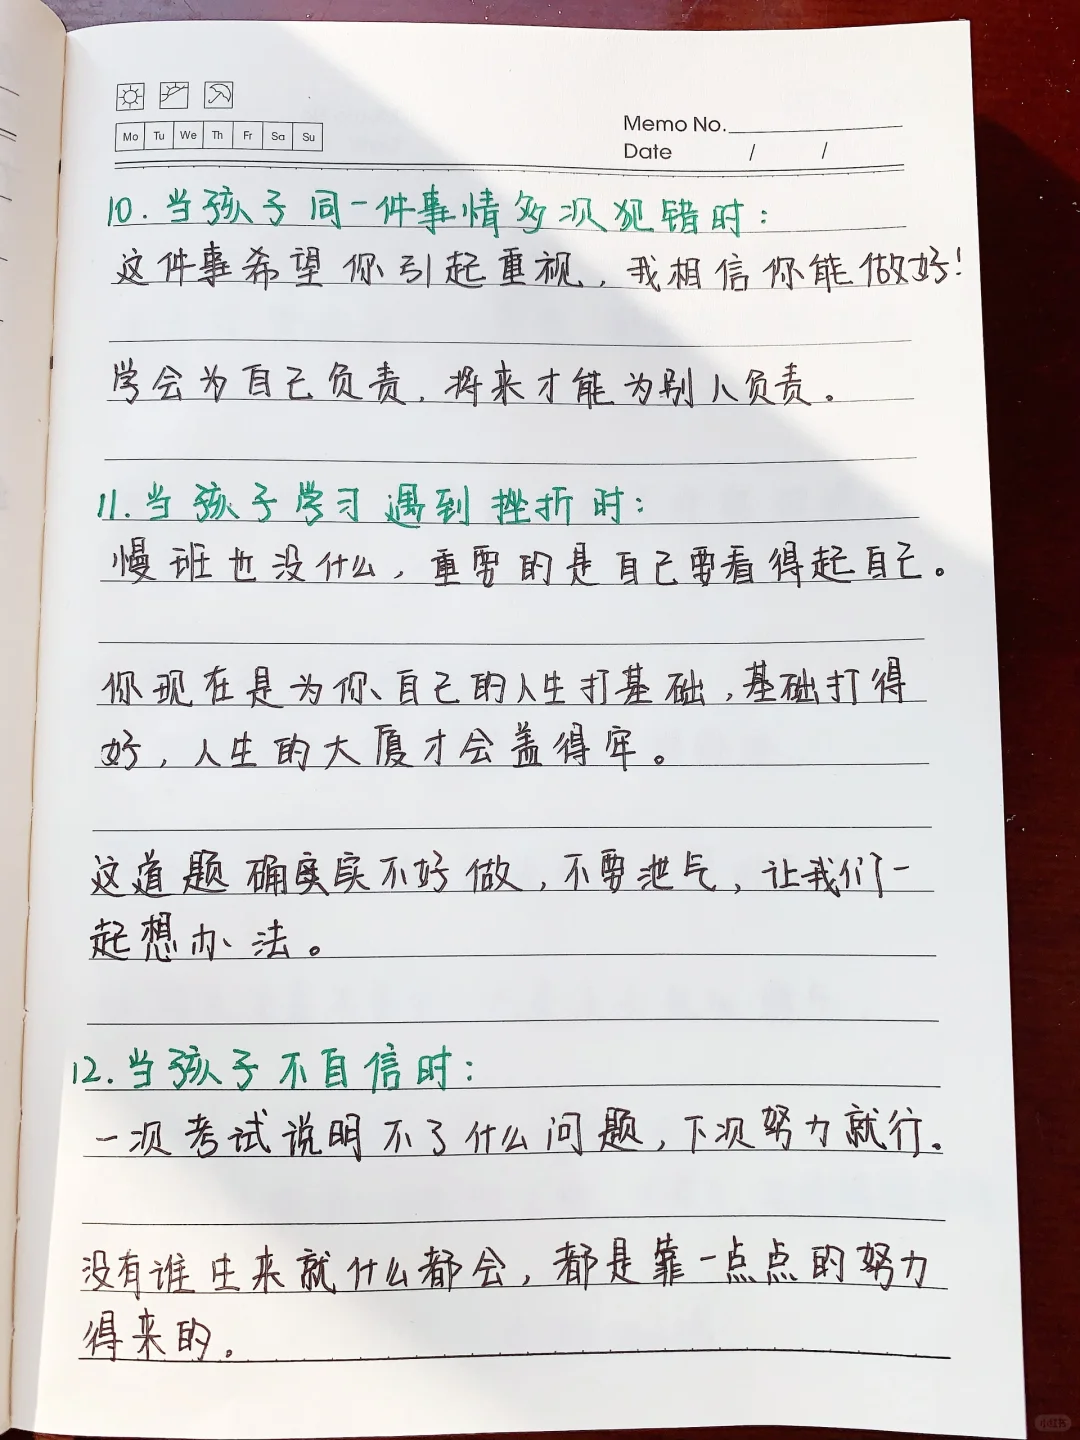 Mo Tu We Th Fr Sa Su
Memo No.
Date / /
10. 当孩子同一件事情多次犯错时:
这件事希望你引起重视，我相信你能做好!
学会为自己负责，将来才能为别人负责。
11. 当孩子学习遇到挫折时:
慢班也没什么，重要的是自己要看得起自己。
你现在是为你自己的人生打基础，基础打得
好，人生的大厦才会盖得牢。
这道题确实实不好做，不要泄气，让我们一
起想办法。
12. 当孩子不自信时:
一次考试说明不了什么问题，下次努力就行。
没有谁生来就什么都会，都是靠一点点的努力
得来的。